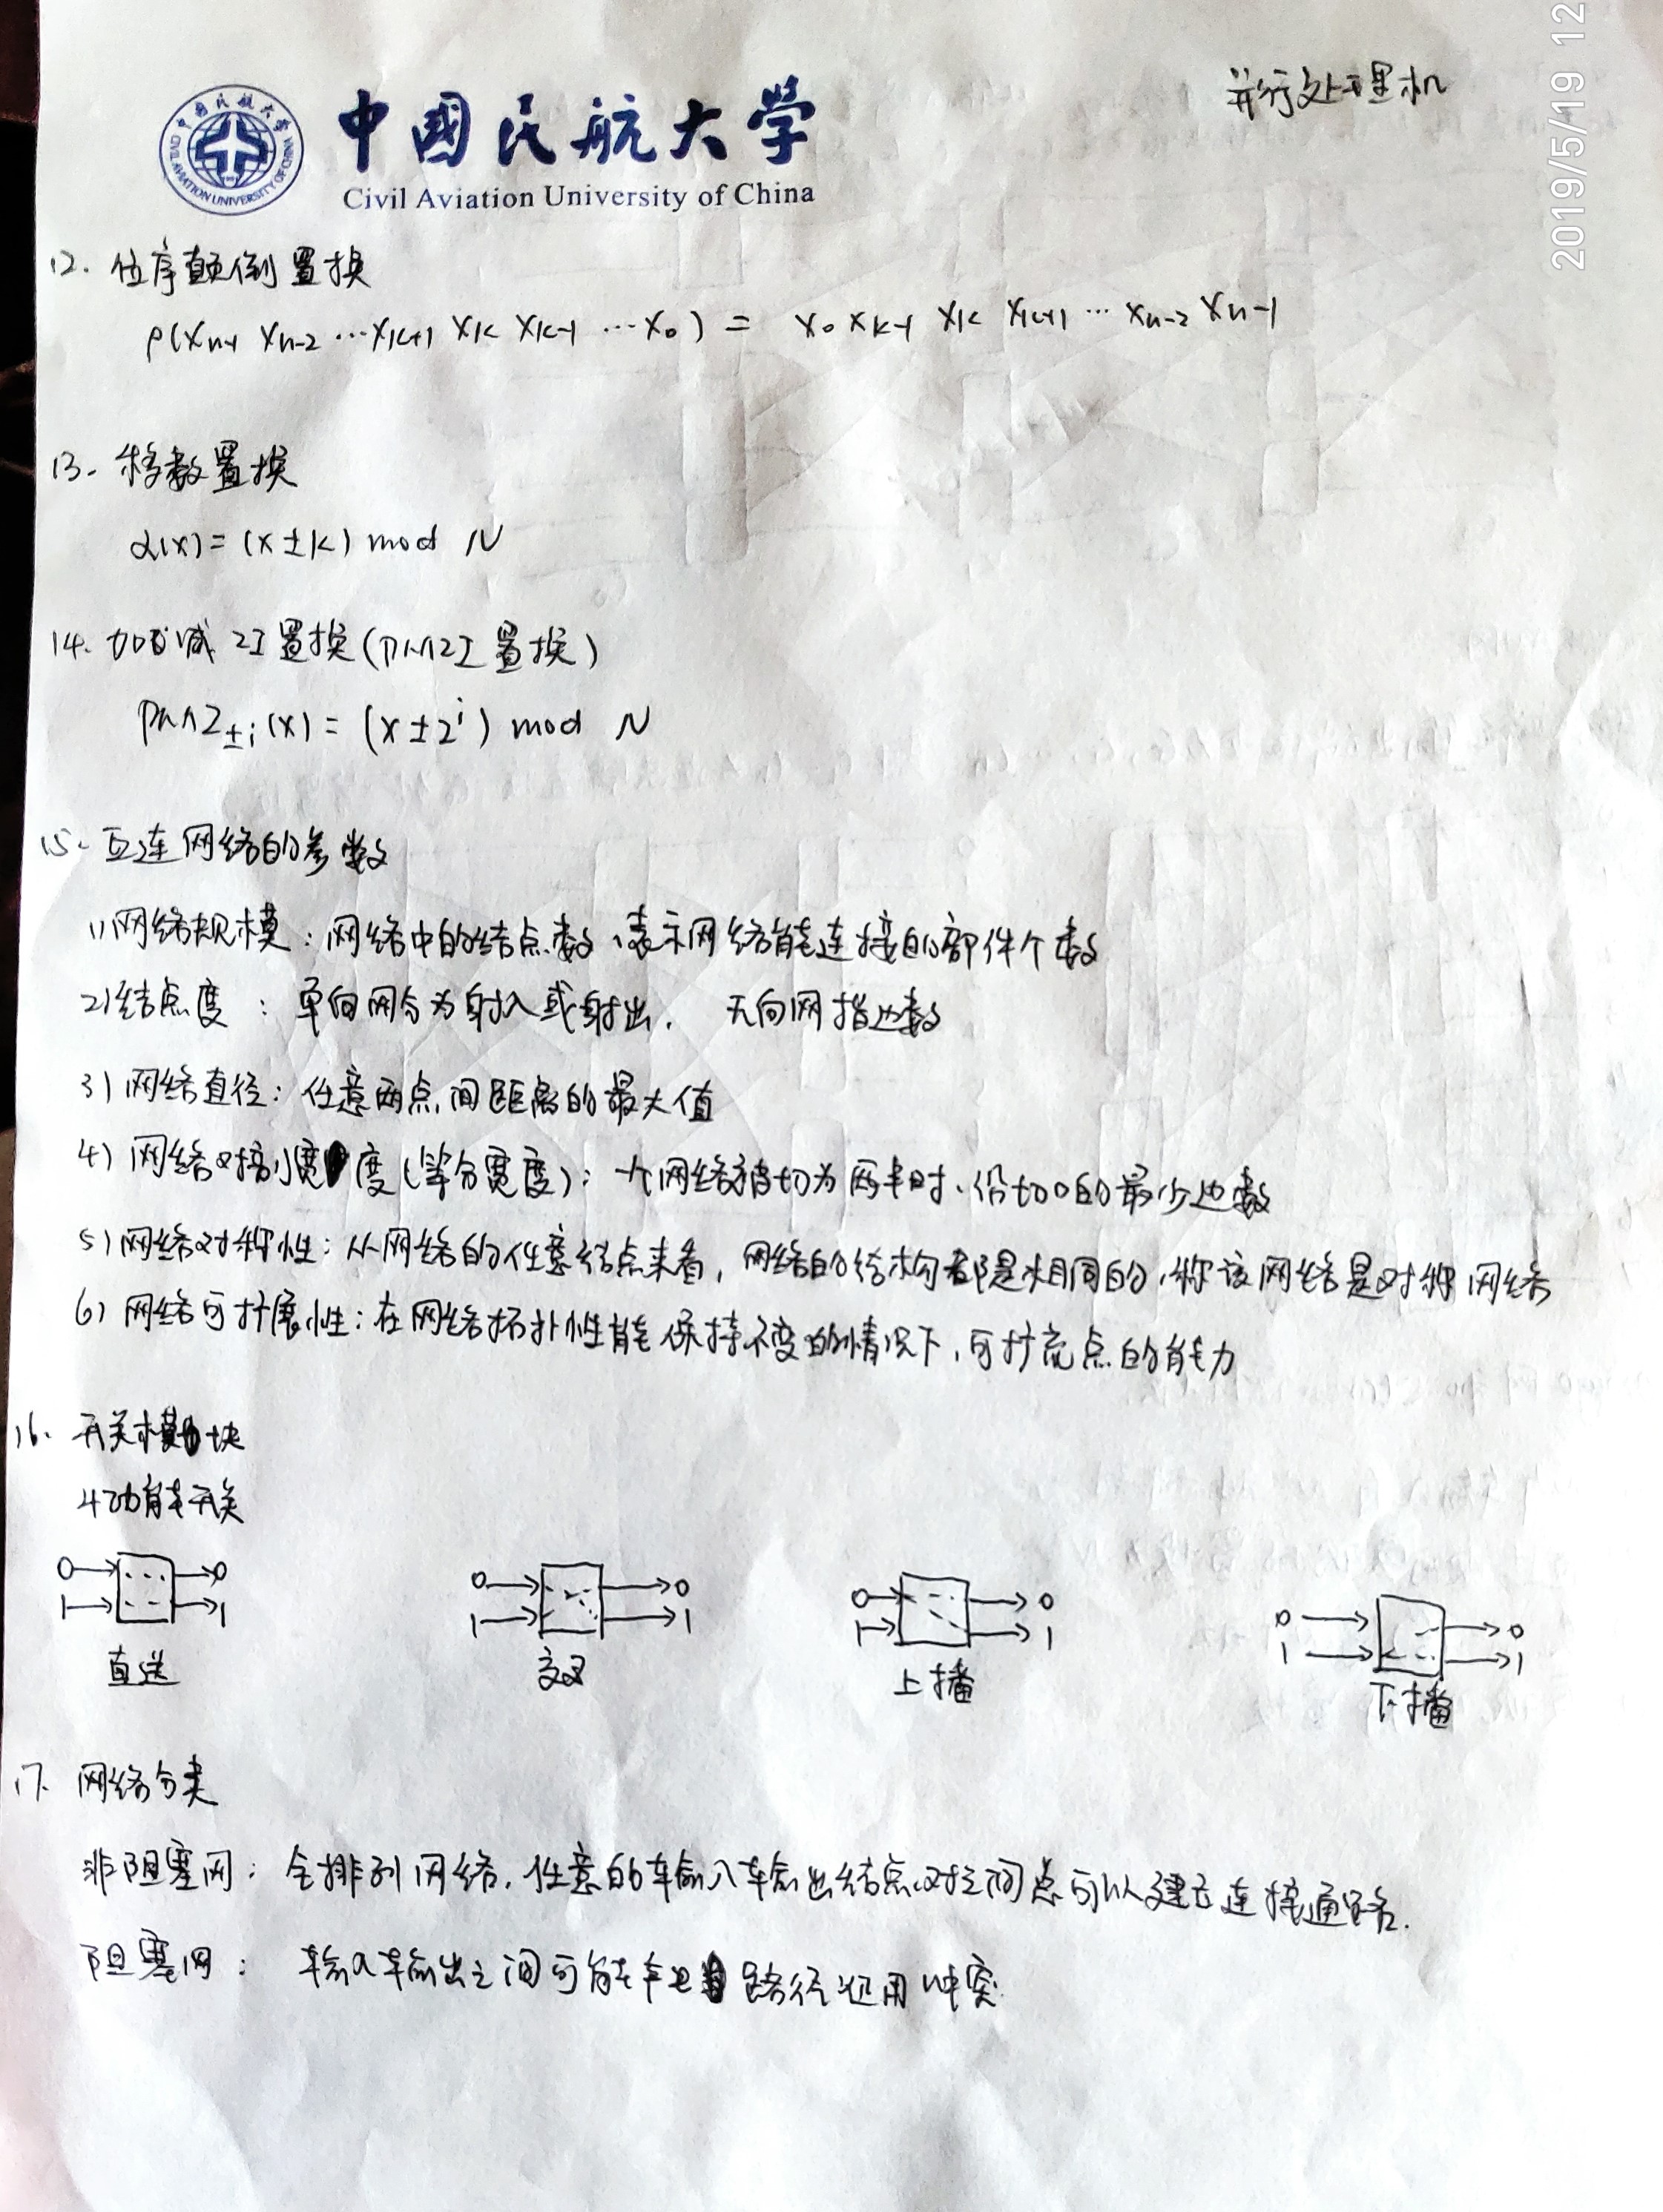 并行处理机
2019/5/19 12
中國民航大学
Civil Aviation University of China
中國民航大学
CIVIL AVIATION UNIVERSITY OF CHINA
12. 位序颠倒置换
ρ(Xn-1 Xn-2 …Xk+1 Xk Xk-1 …X0) = X0 Xk-1 Xk Xk+1 … Xn-2 Xn-1
13. 移数置换
α(x) = (x±k) mod N
14. 加减2I置换(PM2I置换)
PM2±i(x) = (x±2^i) mod N
15. 互连网络的参数
1)网络规模:网络中的结点数,表示网络能连接的部件个数
2)结点度: 单向网分为射入或射出. 无向网指边数
3)网络直径:任意两点间距离的最大值
4)网络对剖宽度(等分宽度): 一个网络被切为两半时,沿切口的最少边数
5)网络对称性:从网络的任意结点来看,网络的结构都是相同的,称该网络是对称网络
6)网络可扩展性:在网络拓扑性能保持不变的情况下,可扩充点的能力
16. 开关模块
4功能开关
0 0 0 0 0 0 0 0
1 1 1 1 1 1 1 1
直送 交叉 上播 下播
17. 网络分类
非阻塞网: 全排列网络. 任意的输入输出结点对之间总可以建立连接通路.
阻塞网: 输入输出之间可能产生路径征用冲突